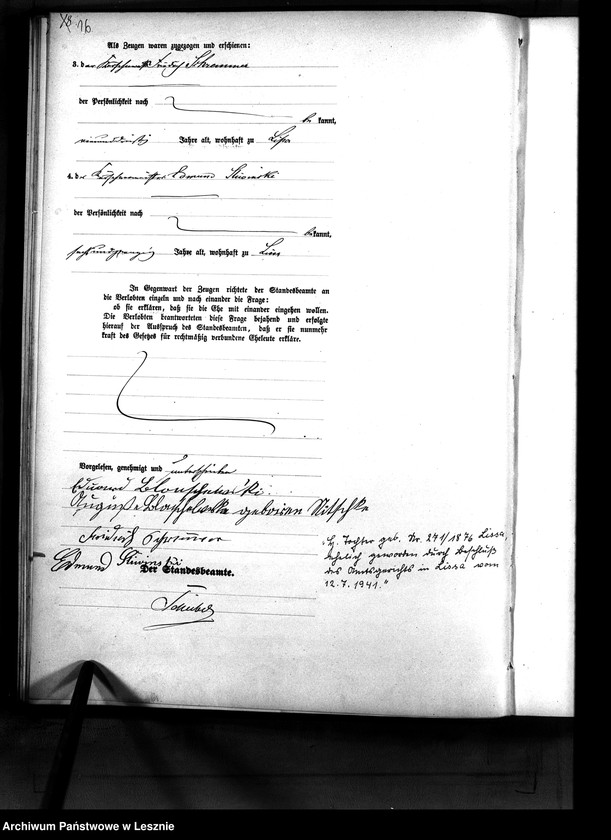 16
Als Zeugen waren zugezogen und erschienen:
3. der Friedrich
der Persönlichkeit nach
be kannt,
Jahre alt, wohnhaft zu Lissa
4. der Edmund
der Persönlichkeit nach
bekannt,
sechsundzwanzig Jahre alt, wohnhaft zu Lissa
In Gegenwart der Zeugen richtete der Standesbeamte an
die Verlobten einzeln und nach einander die Frage:
ob sie erklären, daß sie die Ehe mit einander eingehen wollen.
Die Verlobten beantworteten diese Frage bejahend und erfolgte
hierauf der Ausspruch des Standesbeamten, daß er sie nunmehr
kraft des Gesetzes für rechtmäßig verbundene Eheleute erkläre.
Vorgelesen, genehmigt und unterschrieben
Eduard
Auguste geboren Nitschke
Friedrich
Edmund
Der Standesbeamte.
Tochter geb. Nr. 271/1876 Lissa,
ehelich geworden durch Beschluß
des Amtsgerichts in Lissa vom
12.7.1941."
Archiwum Państwowe w Lesznie